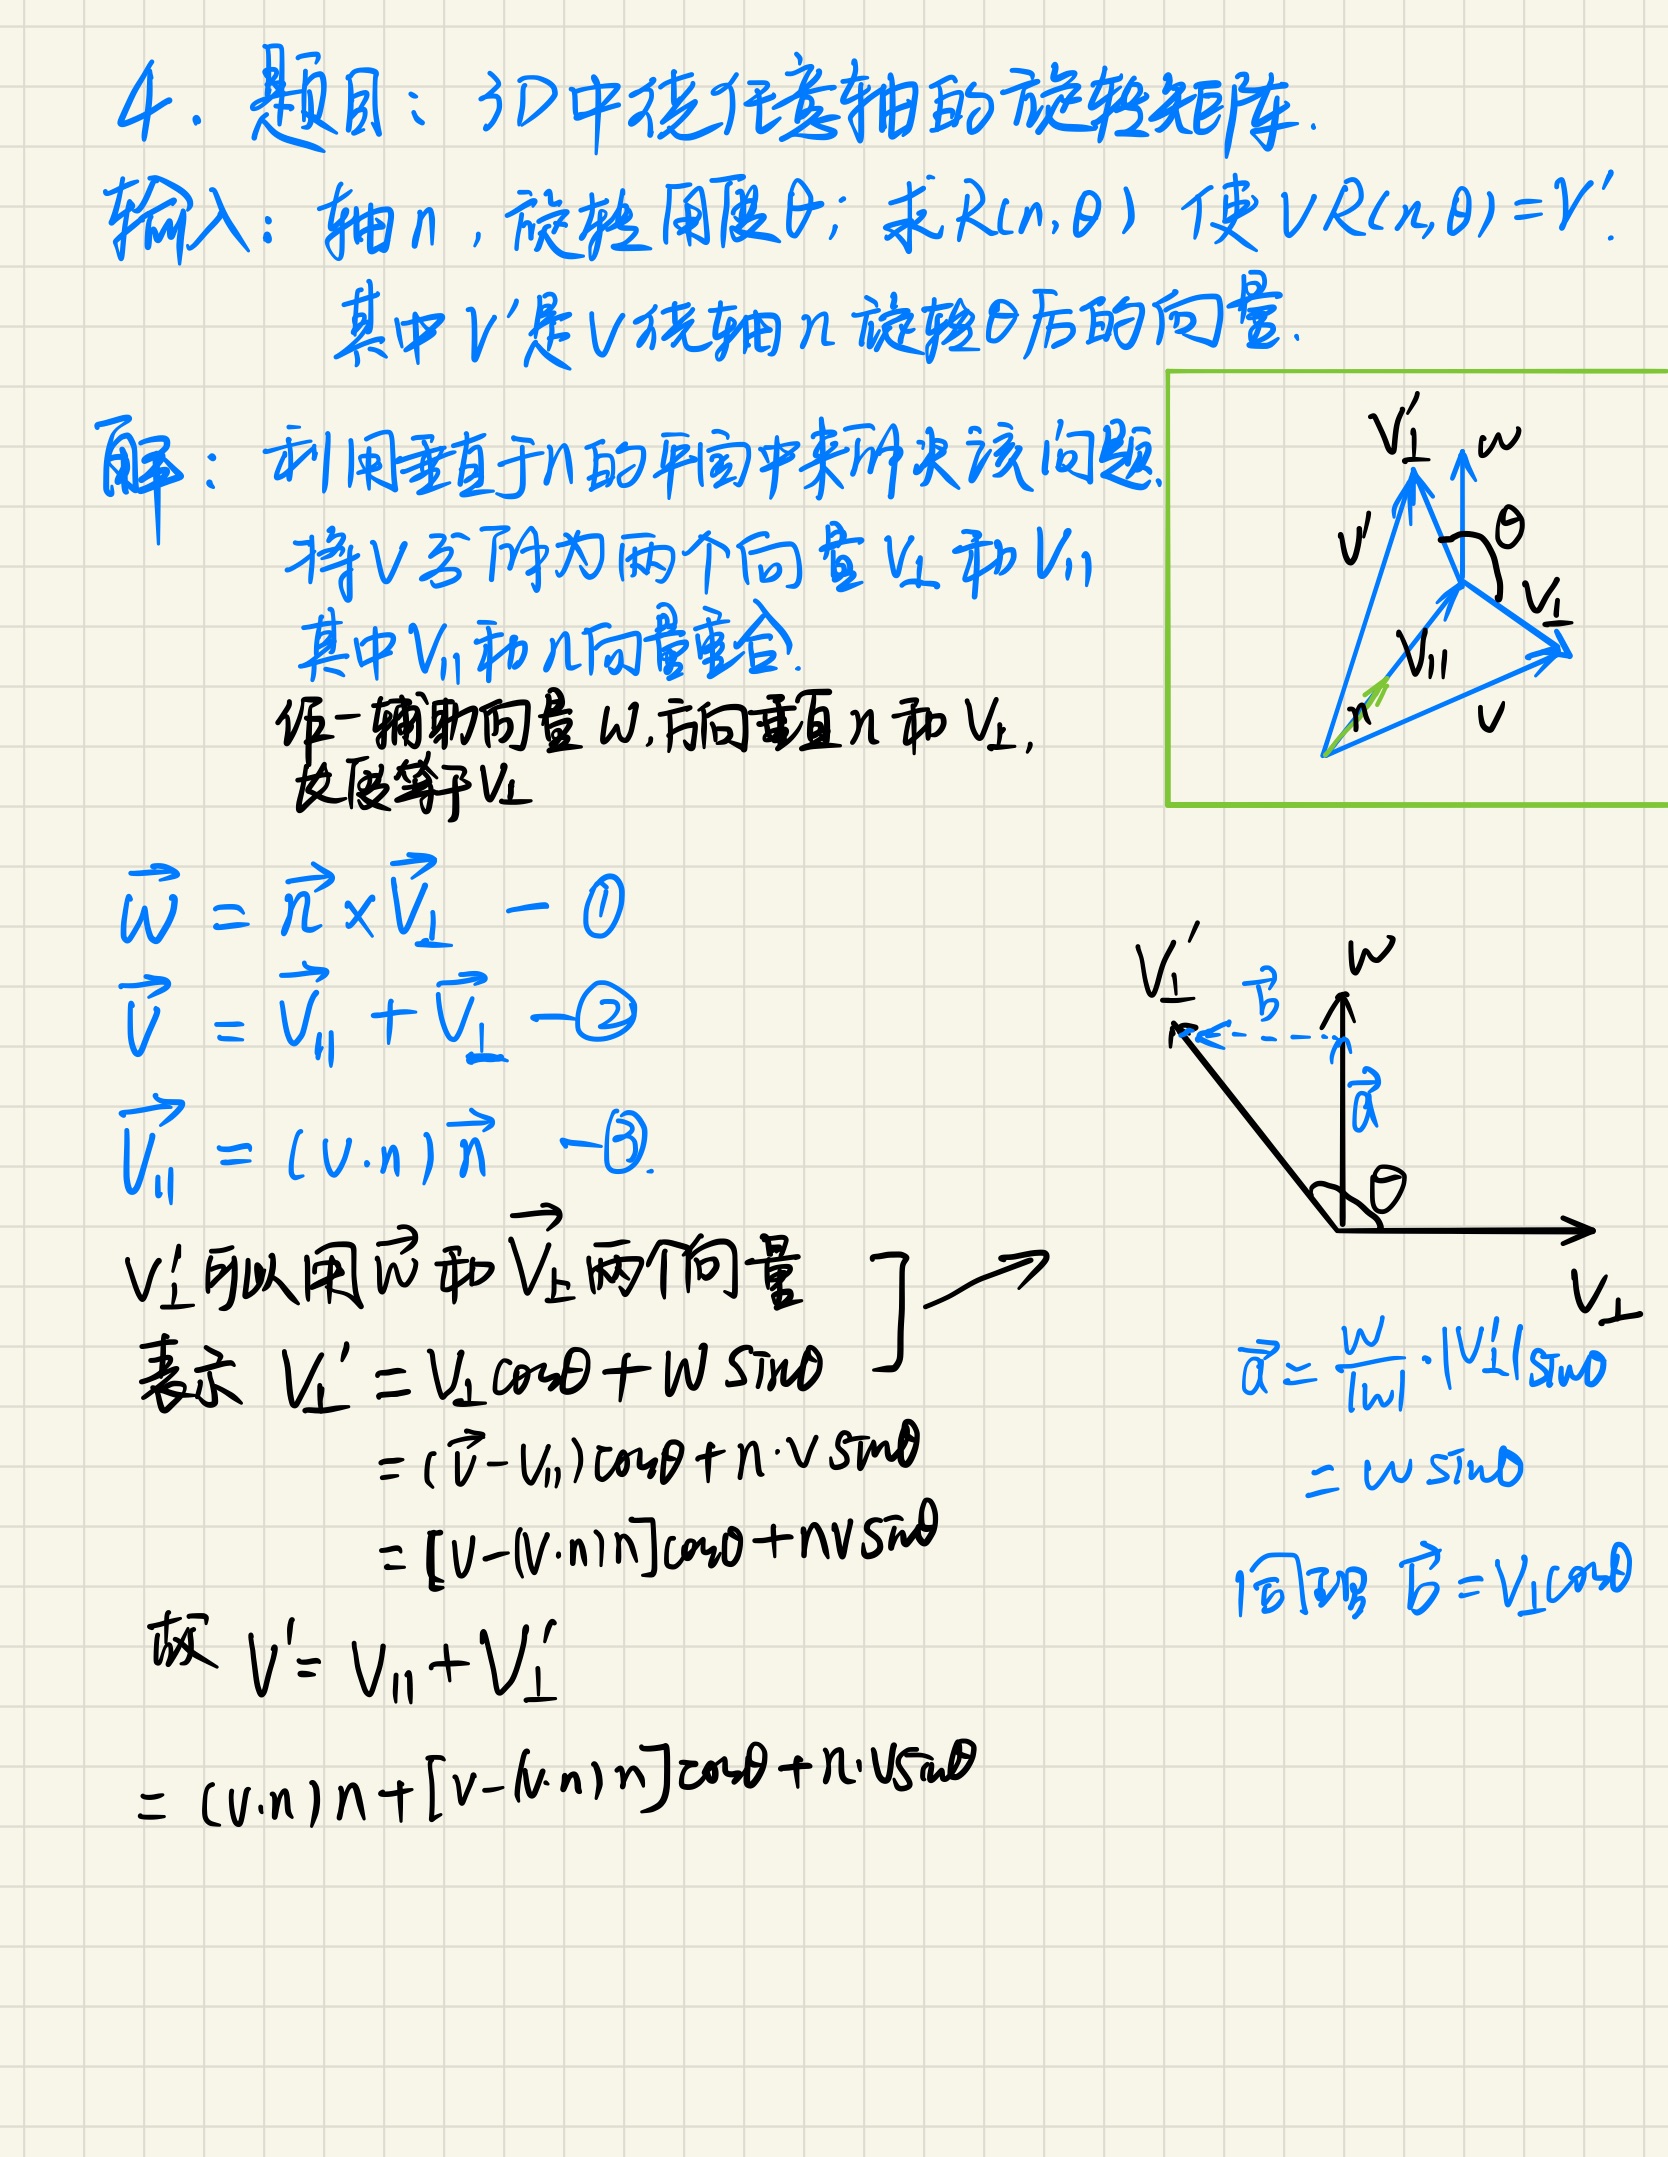 4. 题目：3D中绕任意轴的旋转矩阵.
输入：轴n，旋转角度θ；求R(n,θ) 使VR(n,θ)=V'.
其中V'是V绕轴n旋转θ后的向量.
解：利用垂直于n的平面中来解决该问题.
将V分解为两个向量V⊥和V||
其中V||和n向量重合.
作一辅助向量W,方向垂直n和V⊥,
长度等于V⊥
V'⊥ w
V' θ
V⊥
V||
n V
w⃗ = n⃗ × V⃗⊥ — ①
V⃗ = V⃗|| + V⃗⊥ — ②
V⃗|| = (V·n) n⃗ — ③.
V'⊥可以用w⃗和V⃗⊥两个向量
表示 V⊥' = V⊥cosθ + W sinθ
= (v⃗ - V||) cosθ + n·V sinθ
= [V-(V·n)n]cosθ + nV sinθ
故 V' = V|| + V'⊥
= (V·n) n + [V-(V·n) n] cosθ + n·V sinθ
V⊥' b⃗ w
a⃗
θ
V⊥
a⃗ = w/|w| · |V'⊥| sinθ
= w sinθ
同理 b⃗ = V⊥cosθ